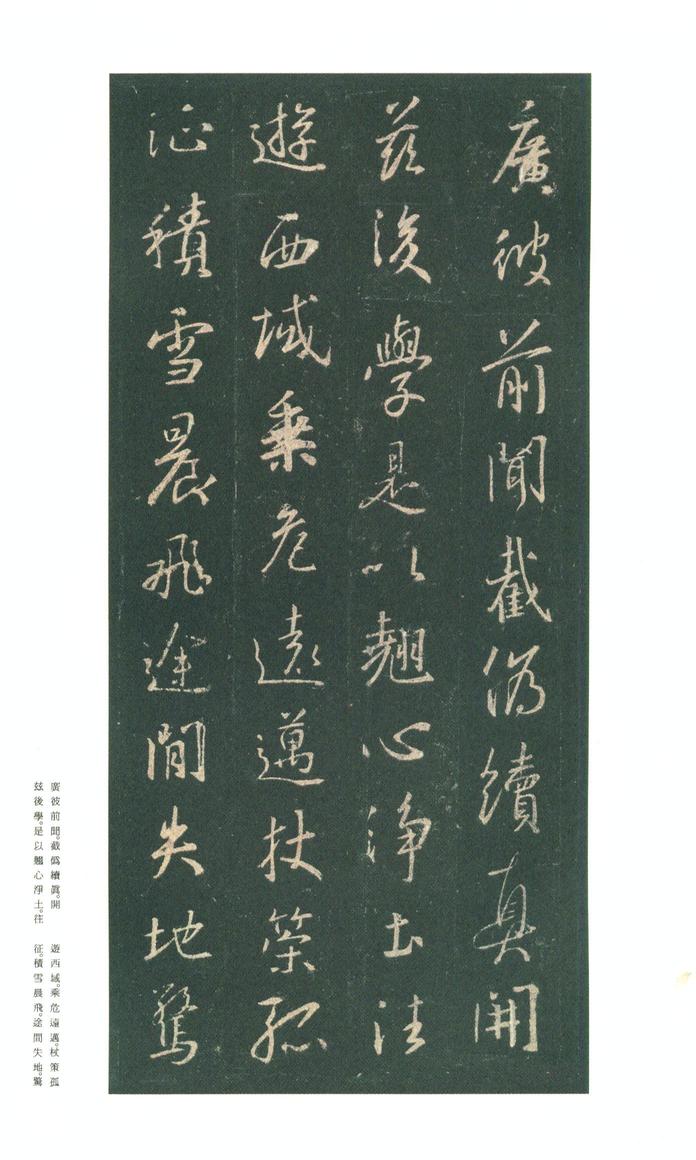 廣彼前聞截偽續真開
茲後學是以翹心淨土往
遊西域乗危遠邁杖策孤
征積雪晨飛途間失地驚
廣彼前聞。截僞續眞。開
玆後學。是以翹心淨土。往
遊西域。乘危遠邁。杖策孤
征。積雪晨飛。途間失地。驚